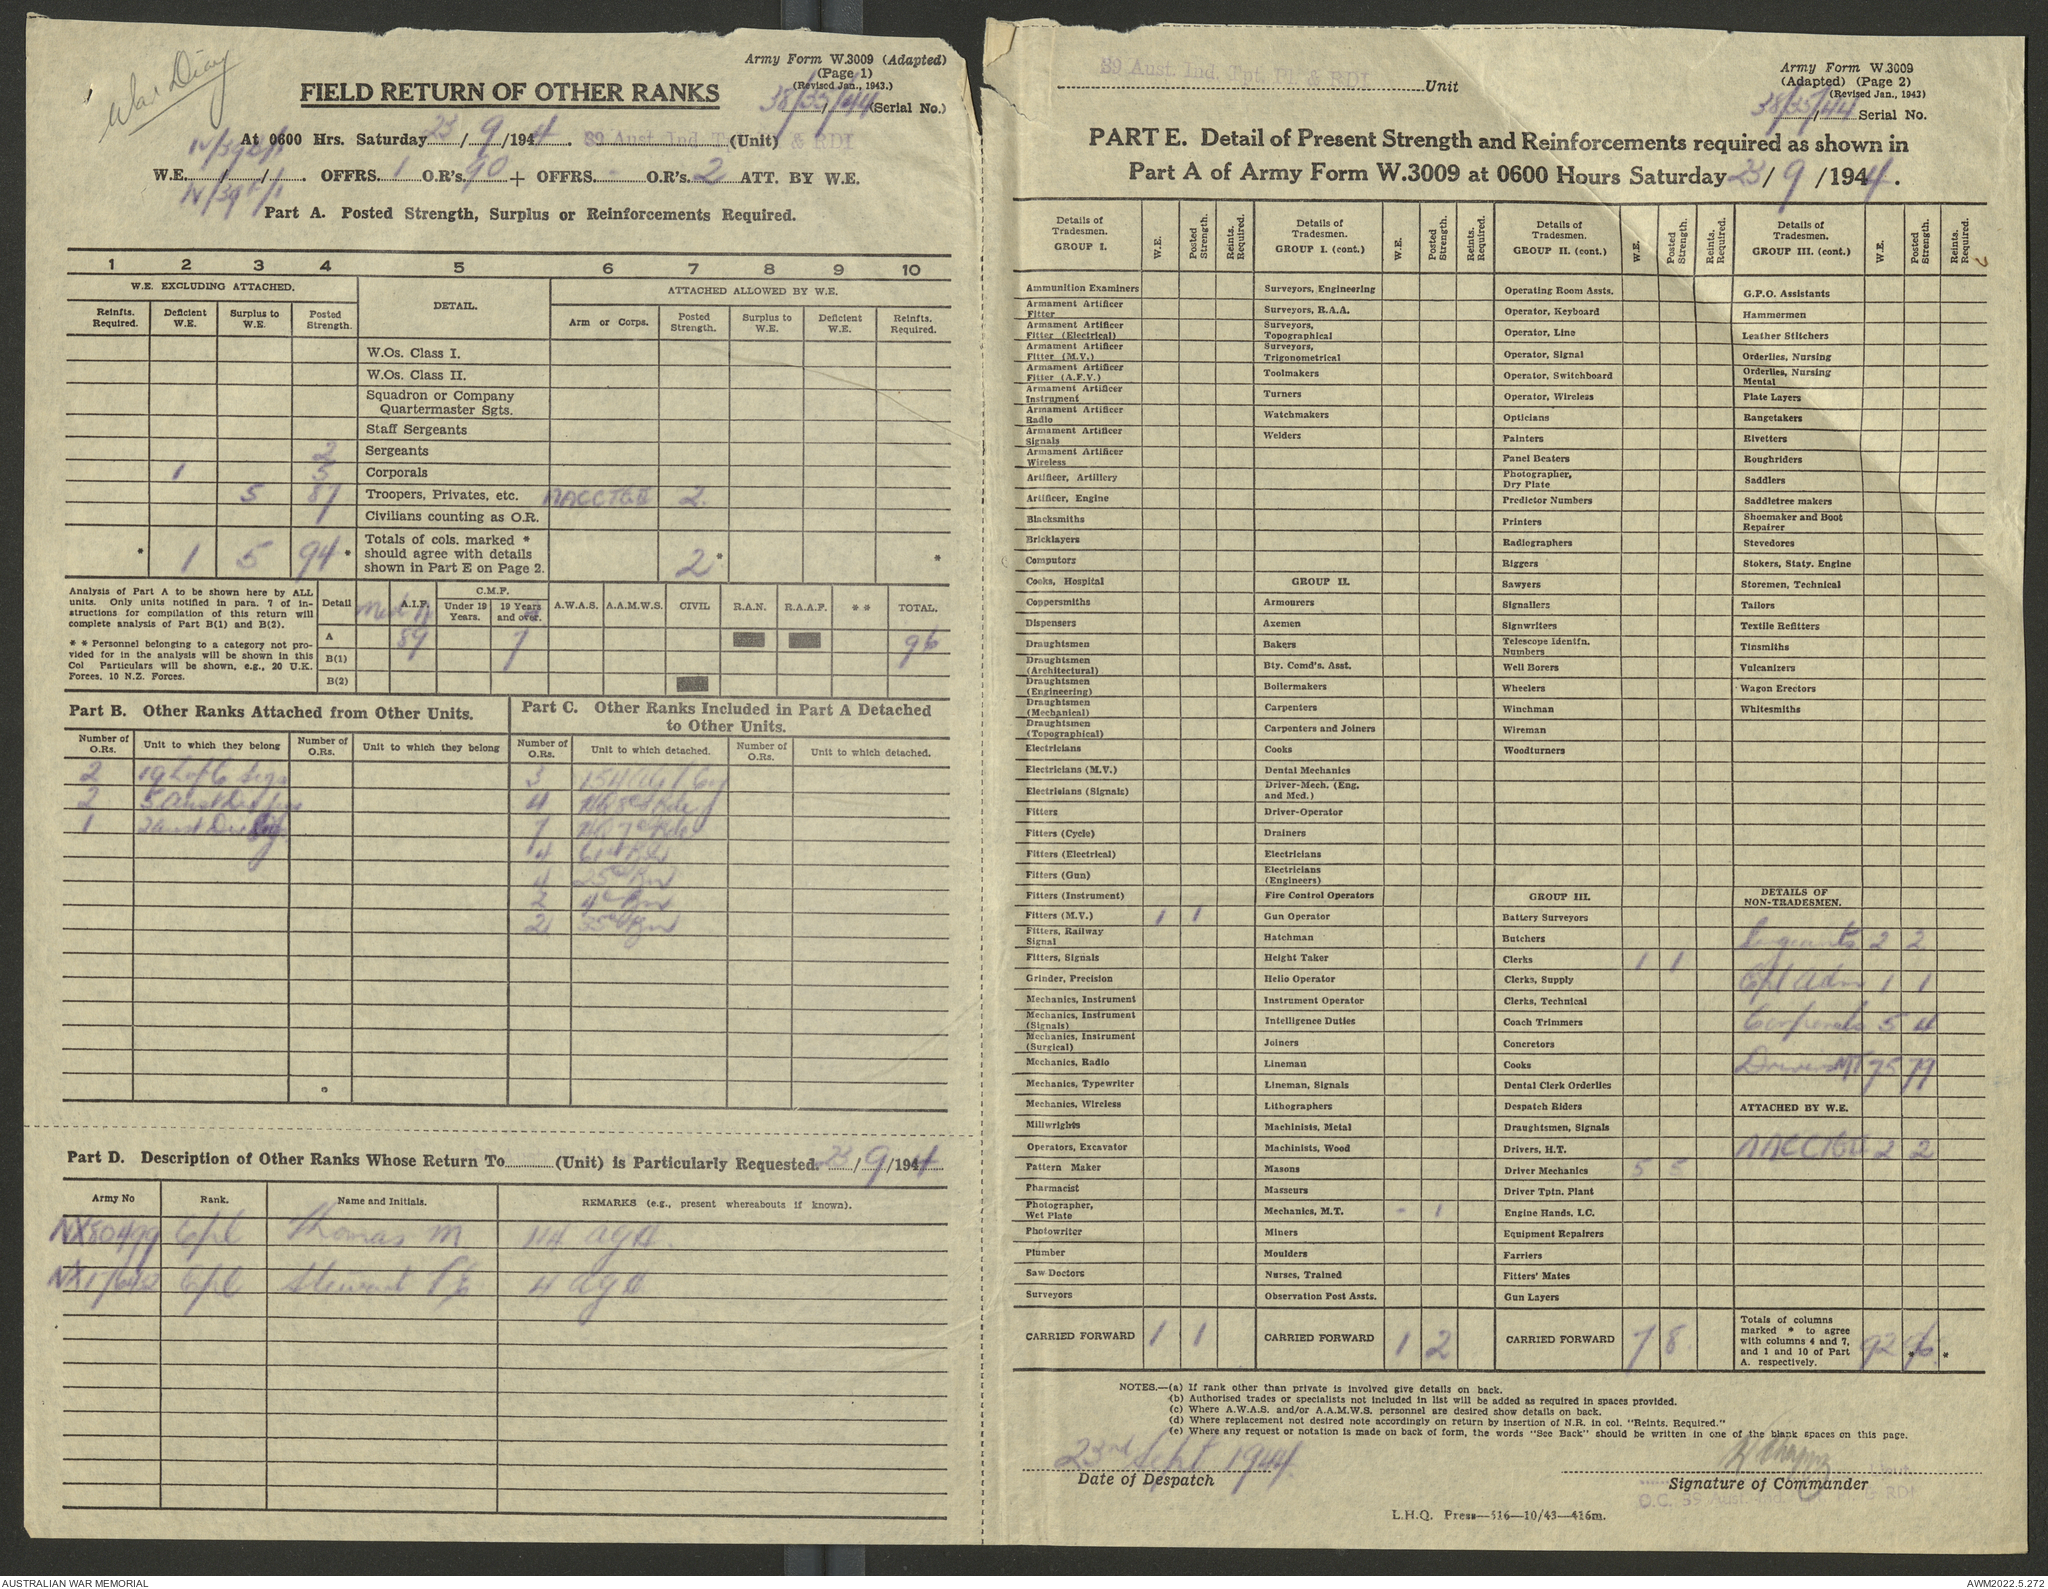 War Diary
Army Form W.3009 (Adapted)
(Page 1)
(Revised Jan., 1943.)
FIELD RETURN OF OTHER RANKS
38/35/44 (Serial No.)
At 0600 Hrs. Saturday 23/9/1944. 39 Aust. Ind. Tpt. Pl & RDI (Unit)
W.E. / / . OFFRS. 1 O.R's. 90 + OFFRS. - O.R's. 2 ATT. BY W.E.
Part A. Posted Strength, Surplus or Reinforcements Required.
1 2 3 4 5 6 7 8 9 10
W.E. EXCLUDING ATTACHED. DETAIL. ATTACHED ALLOWED BY W.E.
Reinfts. Required. Deficient W.E. Surplus to W.E. Posted Strength. Arm or Corps. Posted Strength. Surplus to W.E. Deficient W.E. Reinfts. Required.
W.Os. Class I.
W.Os. Class II.
Squadron or Company
Quartermaster Sgts.
Staff Sergeants
2 Sergeants
1 5 Corporals
5 87 Troopers, Privates, etc. 2
Civilians counting as O.R.
* 1 5 94 * Totals of cols. marked * should agree with details shown in Part E on Page 2. 2 * *
Analysis of Part A to be shown here by ALL
units. Only units notified in para. 7 of in-
structions for compilation of this return will
complete analysis of Part B(1) and B(2).
* * Personnel belonging to a category not pro-
vided for in the analysis will be shown in this
Col Particulars will be shown, e.g., 20 U.K.
Forces, 10 N.Z. Forces.
Detail A.I.F. C.M.F. Under 19 Years. 19 Years and over. A.W.A.S. A.A.M.W.S. CIVIL R.A.N. R.A.A.F. * * TOTAL.
A 89 7 96
B(1)
B(2)
Part B. Other Ranks Attached from Other Units.
Number of O.Rs. Unit to which they belong Number of O.Rs. Unit to which they belong
2 19 L of C Sigs
2 5 Aust Div Sigs
1 2 Aust Div Sigs
Part C. Other Ranks Included in Part A Detached
to Other Units.
Number of O.Rs. Unit to which detached. Number of O.Rs. Unit to which detached.
3
4
7 HQ 7th Bde
4 61st Bn
4 25th Bn
2
2 35th Bn
Part D. Description of Other Ranks Whose Return To (Unit) is Particularly Requested. 23/9/1944
Army No Rank. Name and Initials. REMARKS (e.g., present whereabouts if known).
NX80499 Cpl Thomas M 114 AGH.
Cpl 4 AGH
39 Aust. Ind. Tpt. Pl & RDI Unit
Army Form W.3009
(Adapted) (Page 2)
(Revised Jan., 1943)
38/35/44 Serial No.
PART E. Detail of Present Strength and Reinforcements required as shown in
Part A of Army Form W.3009 at 0600 Hours Saturday 23/9/1944.
Details of Tradesmen. GROUP I. W.E. Posted Strength. Reints. Required.
Ammunition Examiners
Armament Artificer Fitter
Armament Artificer Fitter (Electrical)
Armament Artificer Fitter (M.V.)
Armament Artificer Fitter (A.F.V.)
Armament Artificer Instrument
Armament Artificer Radio
Armament Artificer Signals
Armament Artificer Wireless
Artificer, Artillery
Artificer, Engine
Blacksmiths
Bricklayers
Computors
Cooks, Hospital
Coppersmiths
Dispensers
Draughtsmen
Draughtsmen (Architectural)
Draughtsmen (Engineering)
Draughtsmen (Mechanical)
Draughtsmen (Topographical)
Electricians
Electricians (M.V.)
Electricians (Signals)
Fitters
Fitters (Cycle)
Fitters (Electrical)
Fitters (Gun)
Fitters (Instrument)
Fitters (M.V.) 1 1
Fitters, Railway Signal
Fitters, Signals
Grinder, Precision
Mechanics, Instrument
Mechanics, Instrument (Signals)
Mechanics, Instrument (Surgical)
Mechanics, Radio
Mechanics, Typewriter
Mechanics, Wireless
Millwrights
Operators, Excavator
Pattern Maker
Pharmacist
Photographer, Wet Plate
Photowriter
Plumber
Saw Doctors
Surveyors
CARRIED FORWARD 1 1
Details of Tradesmen. GROUP I. (cont.) W.E. Posted Strength. Reints. Required.
Surveyors, Engineering
Surveyors, R.A.A.
Surveyors, Topographical
Surveyors, Trigonometrical
Toolmakers
Turners
Watchmakers
Welders
GROUP II.
Armourers
Axemen
Bakers
Bty. Comd's. Asst.
Boilermakers
Carpenters
Carpenters and Joiners
Cooks
Dental Mechanics
Driver-Mech. (Eng. and Med.)
Driver-Operator
Drainers
Electricians
Electricians (Engineers)
Fire Control Operators
Gun Operator
Hatchman
Height Taker
Helio Operator
Instrument Operator
Intelligence Duties
Joiners
Lineman
Lineman, Signals
Lithographers
Machinists, Metal
Machinists, Wood
Masons
Masseurs
Mechanics, M.T. - 1
Miners
Moulders
Nurses, Trained
Observation Post Assts.
CARRIED FORWARD 1 2
Details of Tradesmen. GROUP II. (cont.) W.E. Posted Strength. Reints. Required.
Operating Room Assts.
Operator, Keyboard
Operator, Line
Operator, Signal
Operator, Switchboard
Operator, Wireless
Opticians
Painters
Panel Beaters
Photographer, Dry Plate
Predictor Numbers
Printers
Radiographers
Riggers
Sawyers
Signallers
Signwriters
Telescope Identfn. Numbers
Well Borers
Wheelers
Winchman
Wireman
Woodturners
GROUP III.
Battery Surveyors
Butchers
Clerks 1 1
Clerks, Supply
Clerks, Technical
Coach Trimmers
Concretors
Cooks
Dental Clerk Orderlies
Despatch Riders
Draughtsmen, Signals
Drivers, H.T.
Driver Mechanics 5 5
Driver Tptn. Plant
Engine Hands, I.C.
Equipment Repairers
Farriers
Fitters' Mates
Gun Layers
CARRIED FORWARD 7 8
Details of Tradesmen. GROUP III. (cont.) W.E. Posted Strength. Reints. Required.
G.P.O. Assistants
Hammermen
Leather Stitchers
Orderlies, Nursing
Orderlies, Nursing Mental
Plate Layers
Rangetakers
Rivetters
Roughriders
Saddlers
Saddletree makers
Shoemaker and Boot Repairer
Stevedores
Stokers, Staty. Engine
Storemen, Technical
Tailors
Textile Refitters
Tinsmiths
Vulcanizers
Wagon Erectors
Whitesmiths
DETAILS OF NON-TRADESMEN.
Sergeants 2 2
Cpl Adm 1 1
Corporals 5 4
Drivers MT 75 79
ATTACHED BY W.E.
2 2
Totals of columns marked * to agree with columns 4 and 7, and 1 and 10 of Part A. respectively. 92 * 96 *
NOTES.—(a) If rank other than private is involved give details on back.
(b) Authorised trades or specialists not included in list will be added as required in spaces provided.
(c) Where A.W.A.S. and/or A.A.M.W.S. personnel are desired show details on back.
(d) Where replacement not desired note accordingly on return by insertion of N.R. in col. "Reints. Required."
(e) Where any request or notation is made on back of form, the words "See Back" should be written in one of the blank spaces on this page.
23rd Sept 1944.
Date of Despatch
Lieut
Signature of Commander
O.C. 39 Aust. Ind. Tpt. Pl. & RDI
L.H.Q. Press—516—10/43—416m.
AUSTRALIAN WAR MEMORIAL
AWM2022.5.272